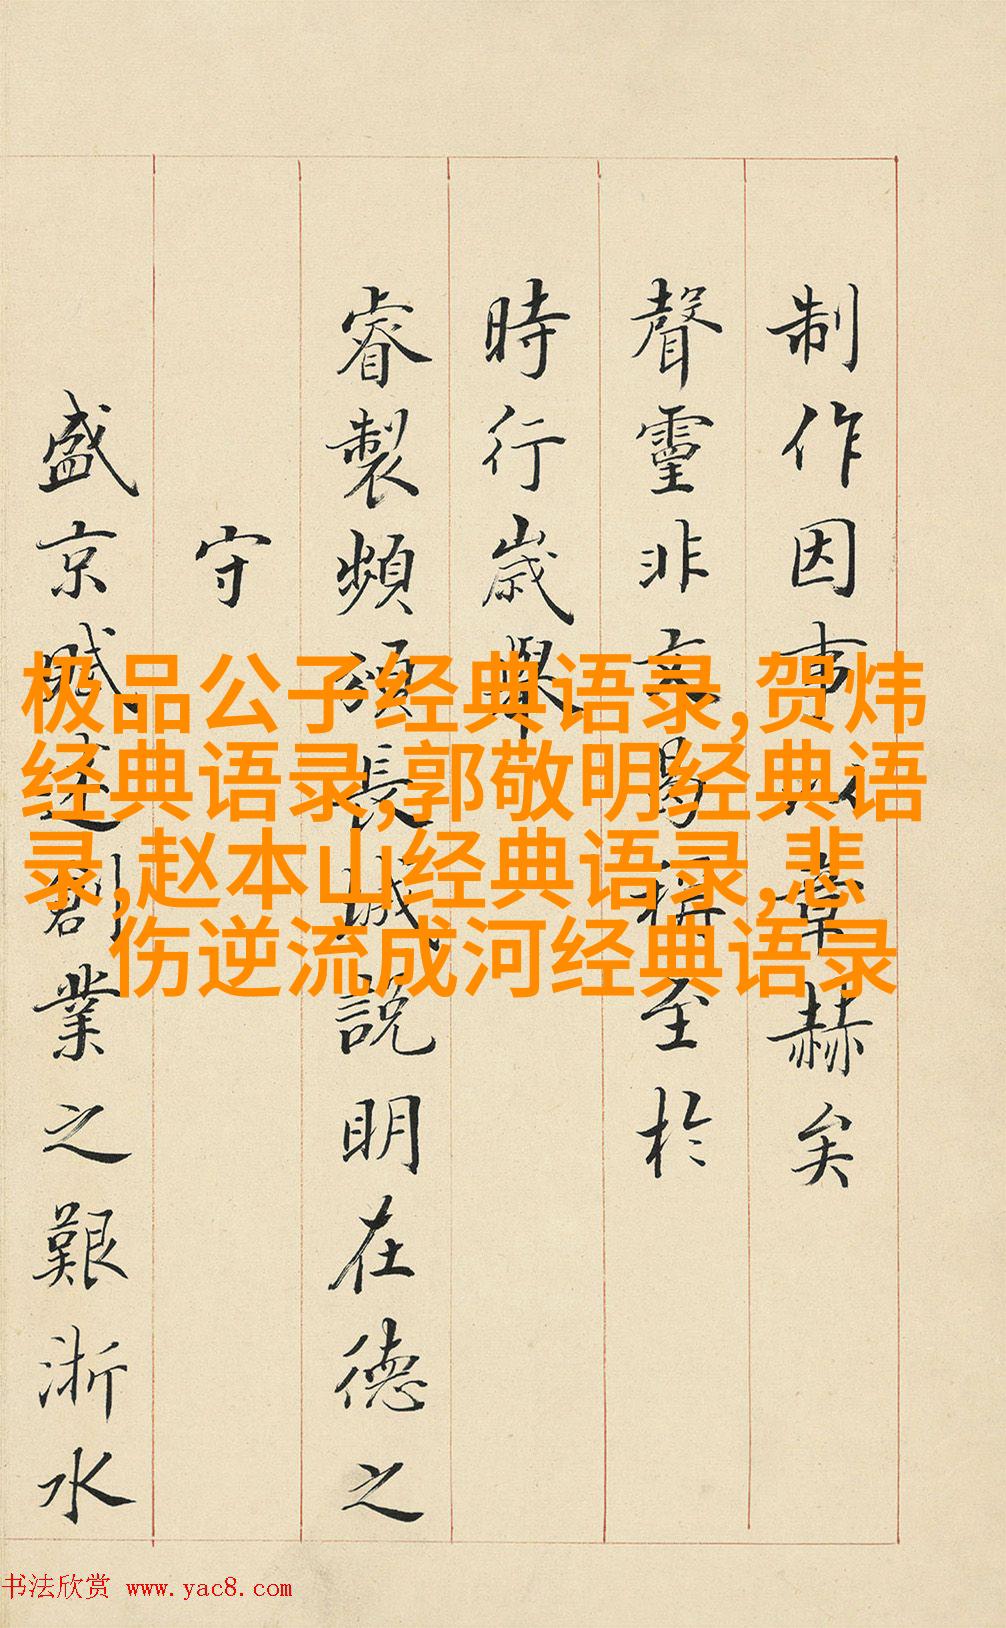 制作因事以章赫矣
聲靈非文曷稱至於
時行歲舉
睿製頻頒長城說明在德之
守
盛京賦述創業之艱浙水
极品公子经典语录,贺炜
经典语录,郭敬明经典语
录,赵本山经典语录,悲
伤逆流成河经典语录
书法欣赏 www.yac8.com